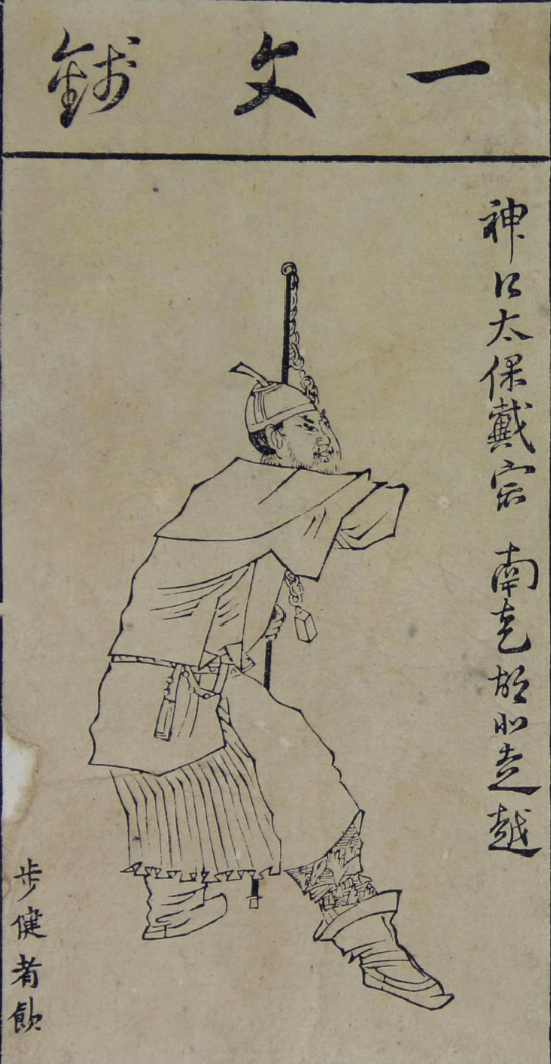 一文錢
神行太保戴宗 南走胡北走越
步健者飲